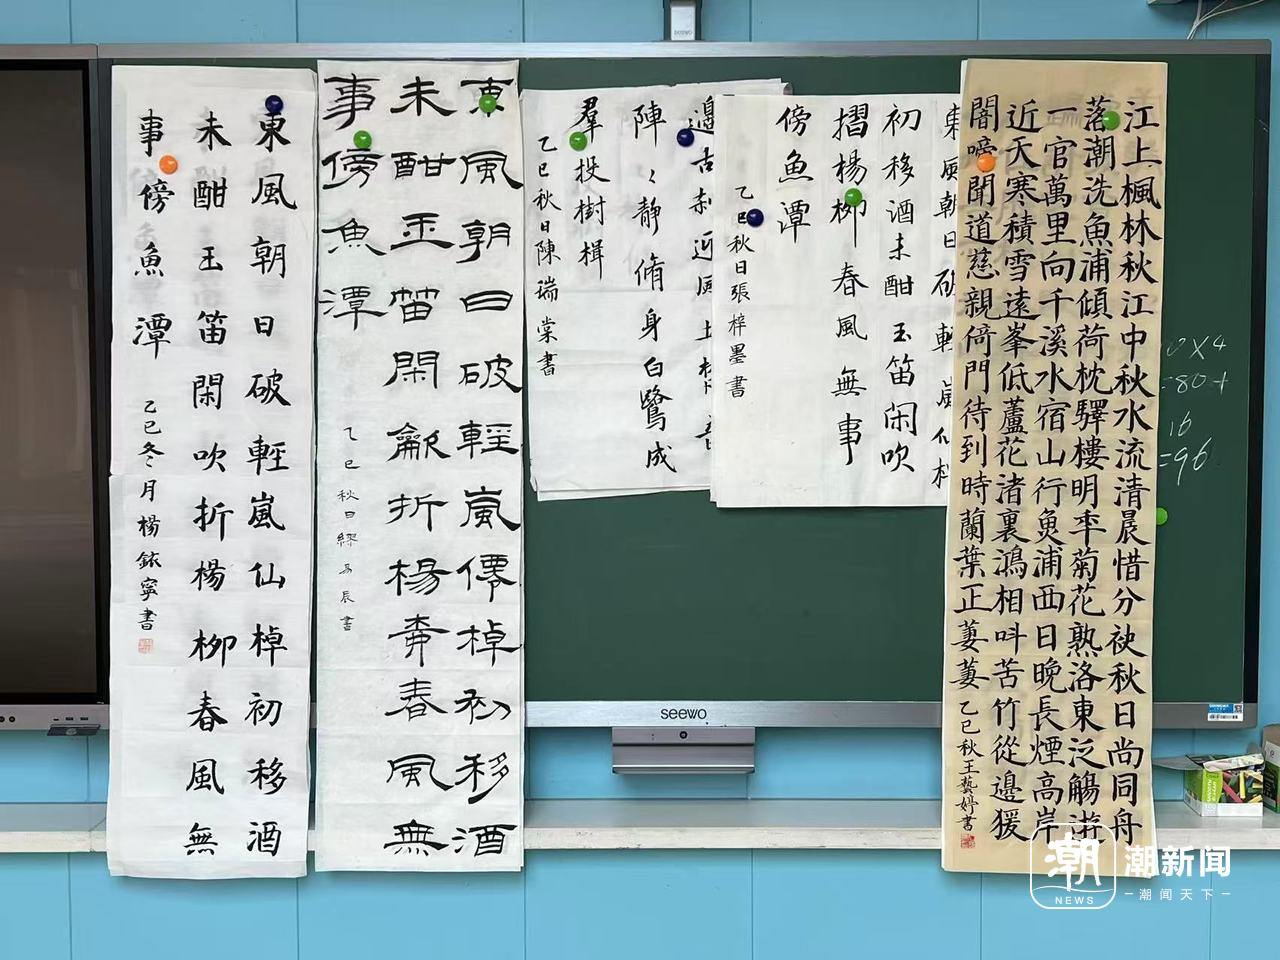 東風朝日破輕嵐仙棹初移酒
未酣玉笛閑吹折楊柳春風無
事傍魚潭
乙巳冬月楊銥寧書
東風朝日破輕嵐僊棹初移酒
未酣玉笛閑龡折楊桺春風無
事傍魚潭
乙巳秋日繆易辰書
邊古刹近風土
陣〻靜脩身白鷺成
羣投樹楫
乙巳秋日陳瑞棠書
東風朝日破輕嵐仙棹
初移酒未酣玉笛闲吹
摺楊柳春風無事
傍魚潭
乙巳秋日張梓墨書
江上楓林秋江中秋水流清晨惜分袂秋日尚同舟
落潮洗魚浦傾荷枕驛樓明年菊花熟洛東泛觴遊
一官萬里向千溪水宿山行魚浦西日晚長煙高岸
近天寒積雪遠峯低蘆花渚裏鴻相叫苦竹從邊猨
闇啼聞道慈親倚門待到時蘭葉正萋萋乙巳秋王藝婷書
0×4
=80+
16
=96
seewo
潮
NEWS
潮新闻
潮闻天下